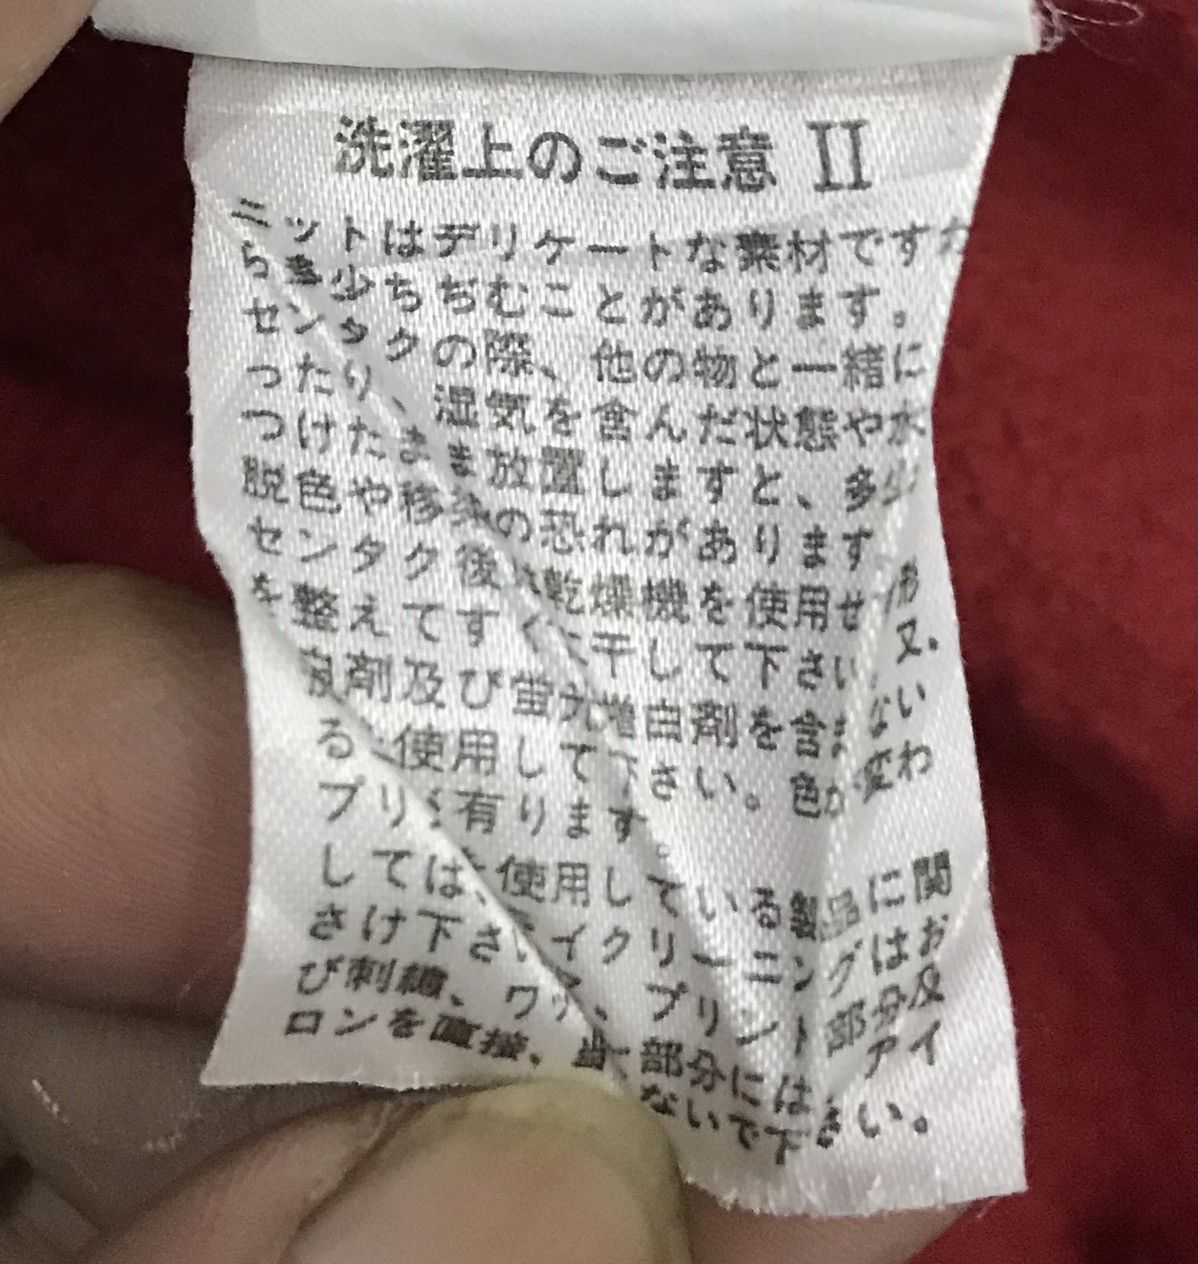 洗濯上のご注意 II
ニットはデリケートな素材ですか
ら多少ちぢむことがあります。
センタクの際、他の物と一緒に
ったり、湿気を含んだ状態や水
つけたまま放置しますと、多少
脱色や移染の恐れがあります
センタク後は乾燥機を使用せ 形
を整えてすぐに干して下さい 又、
剤及び蛍光増白剤を含まない
る 使用して下さい。色が変わ
プリ 有ります。
しては、使用している製品に関
さけ下さい イクリーニングはお
び刺繍、ワッ 、プリント部分及
ロンを直接、当 部分にはアイ
ないで下さい。